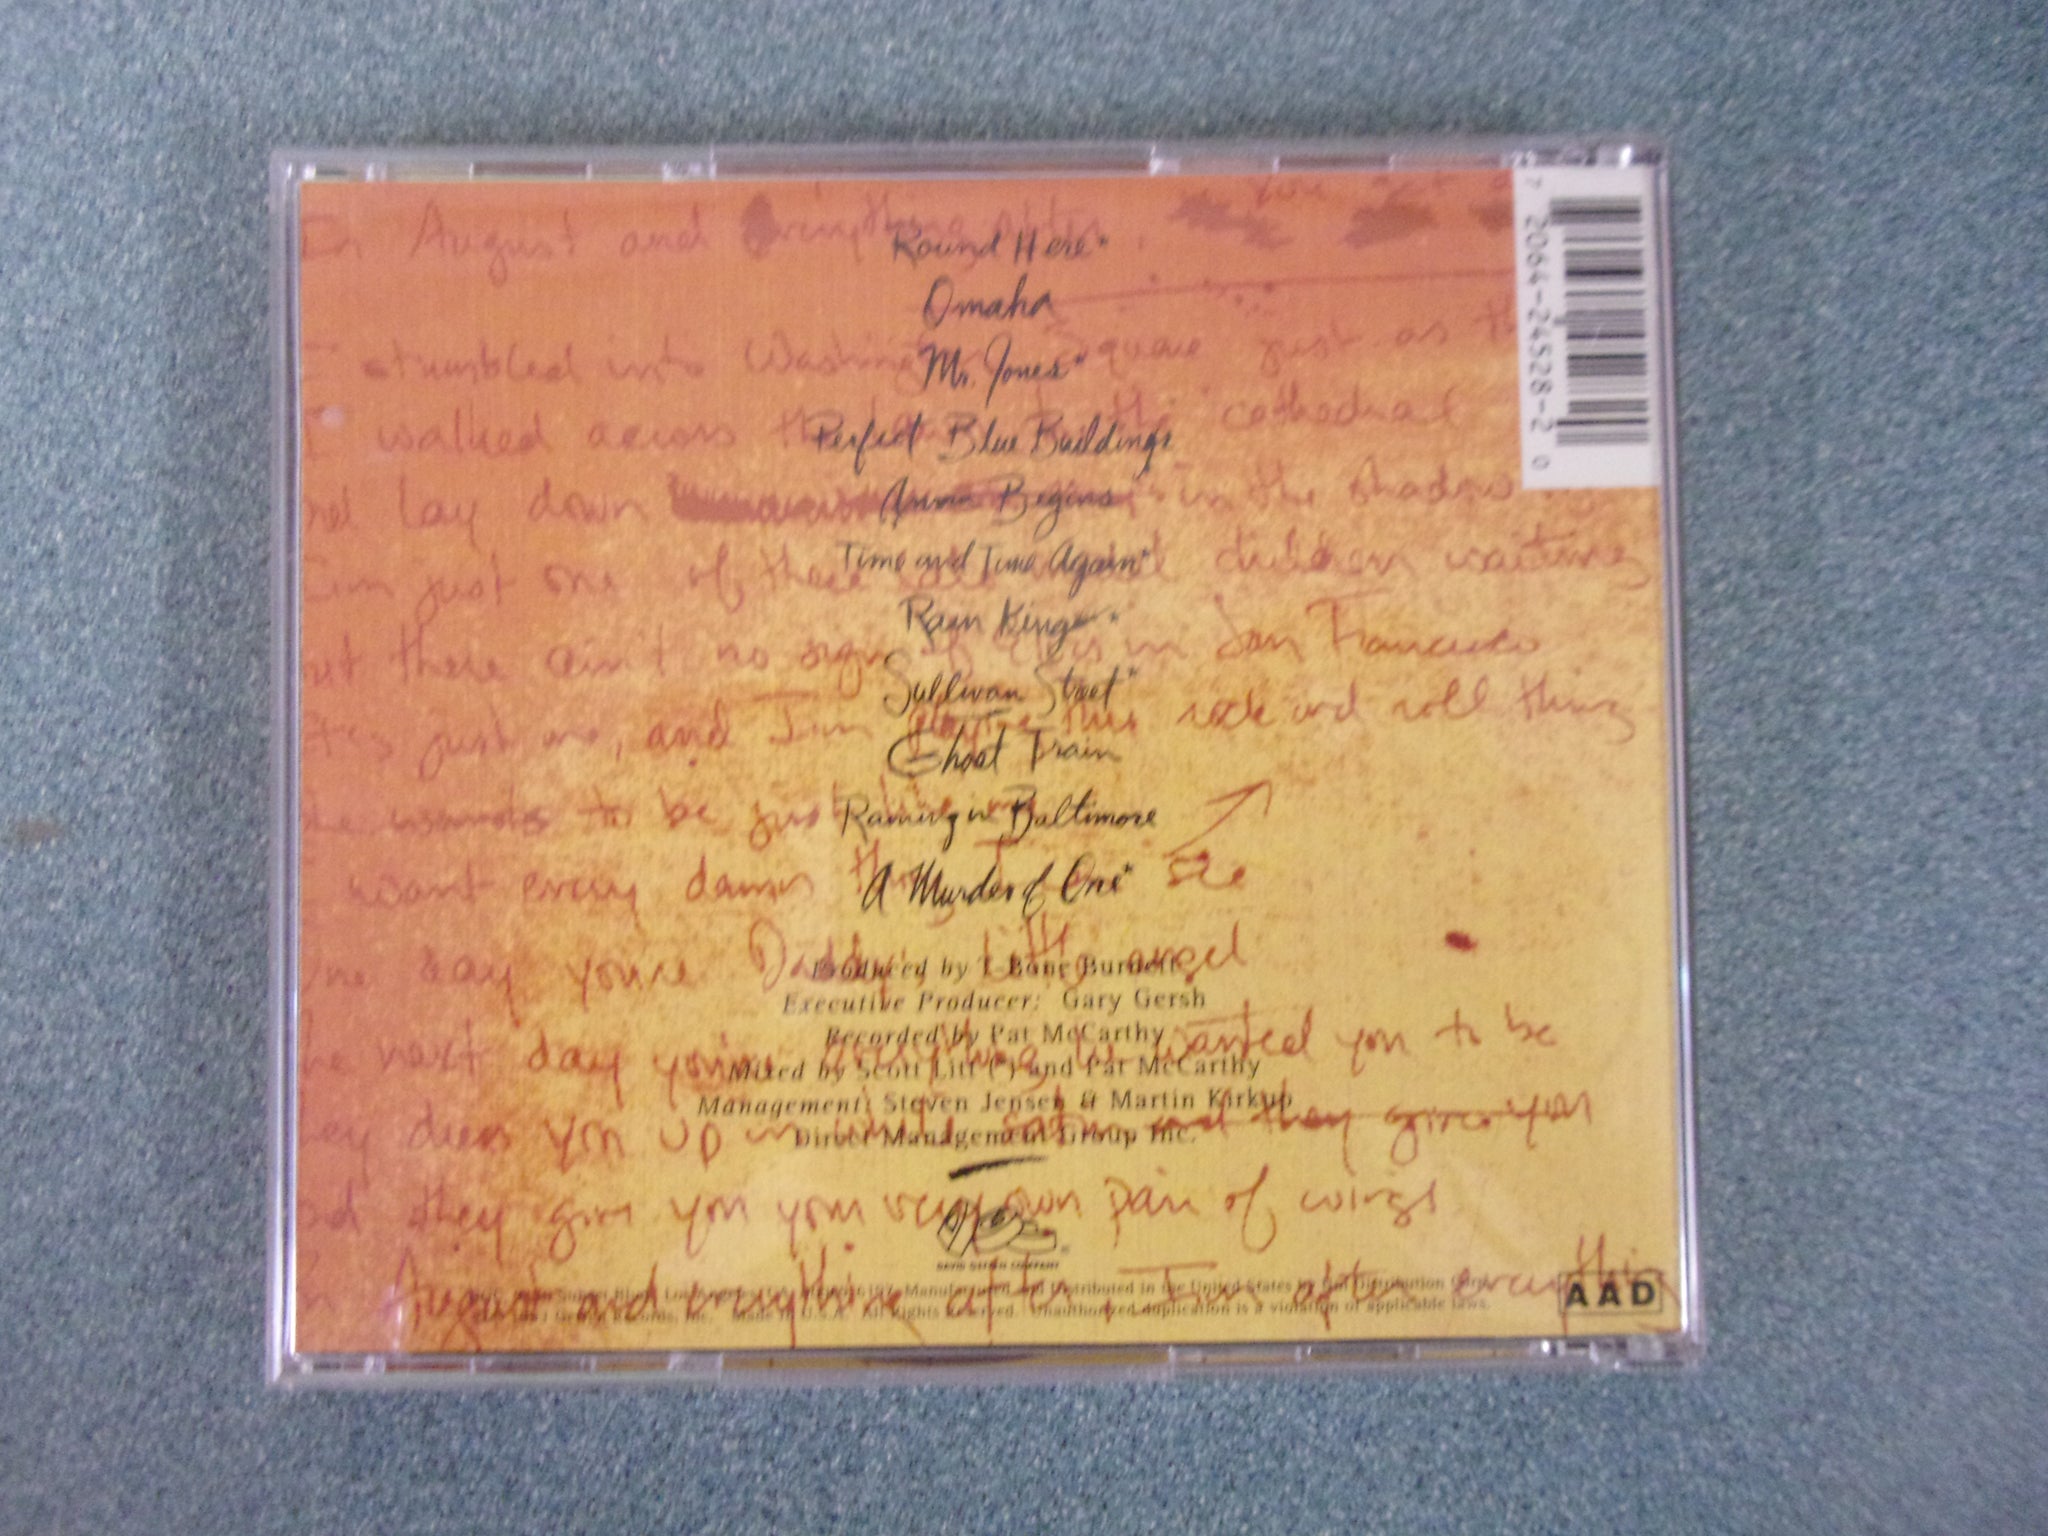 In August and Everything after.
Round Here*
Omaha
I stumbled into Washington Square just as th
Mr. Jones*
I walked across the cathedral
Perfect Blue Buildings
lay down in the shadow
Anna Begins
I'm just one of these children waiting
Time and Time Again*
Rain King*
there ain't no sign of in San Francisco
Sullivan Street*
just me, and I'm playing this rock and roll thing
Ghost Train
wants to be just like me
Raining in Baltimore
want every damn thing I see
A Murder of One*
day you're Daddy's little angel
Produced by T-Bone Burnett
Executive Producer: Gary Gersh
Recorded by Pat McCarthy
next day you're everything he wanted you to be
Mixed by Scott Litt (*) and Pat McCarthy
Management: Steven Jensen & Martin Kirkup
dress you up in white satin and they give you
Direct Management Group Inc.
they give you your very own pair of wings
DGC
DAVID GEFFEN COMPANY
August and everything after I'm after everything
Manufactured and Distributed in the United States by Uni Distribution Corp.
Geffen Records, Inc. Made in U.S.A. All Rights Reserved. Unauthorized duplication is a violation of applicable laws.
AAD
7 2064-24528-2 0